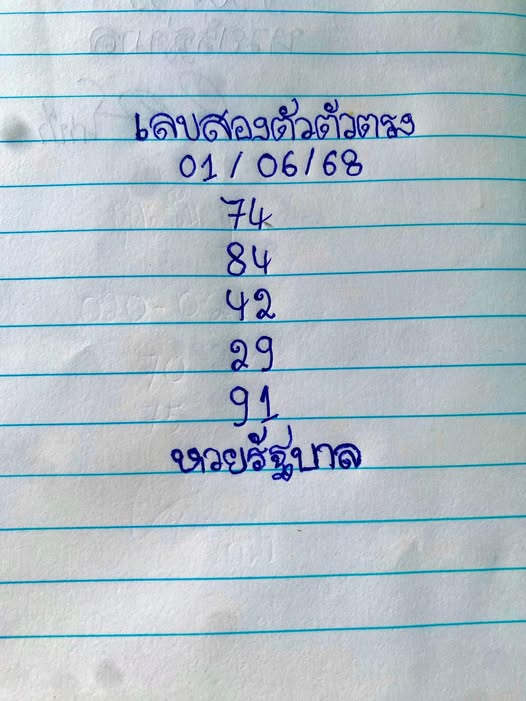 เลขสองตัวตัวตรง
01/06/68
74
84
42
29
91
หวยรัฐบาล